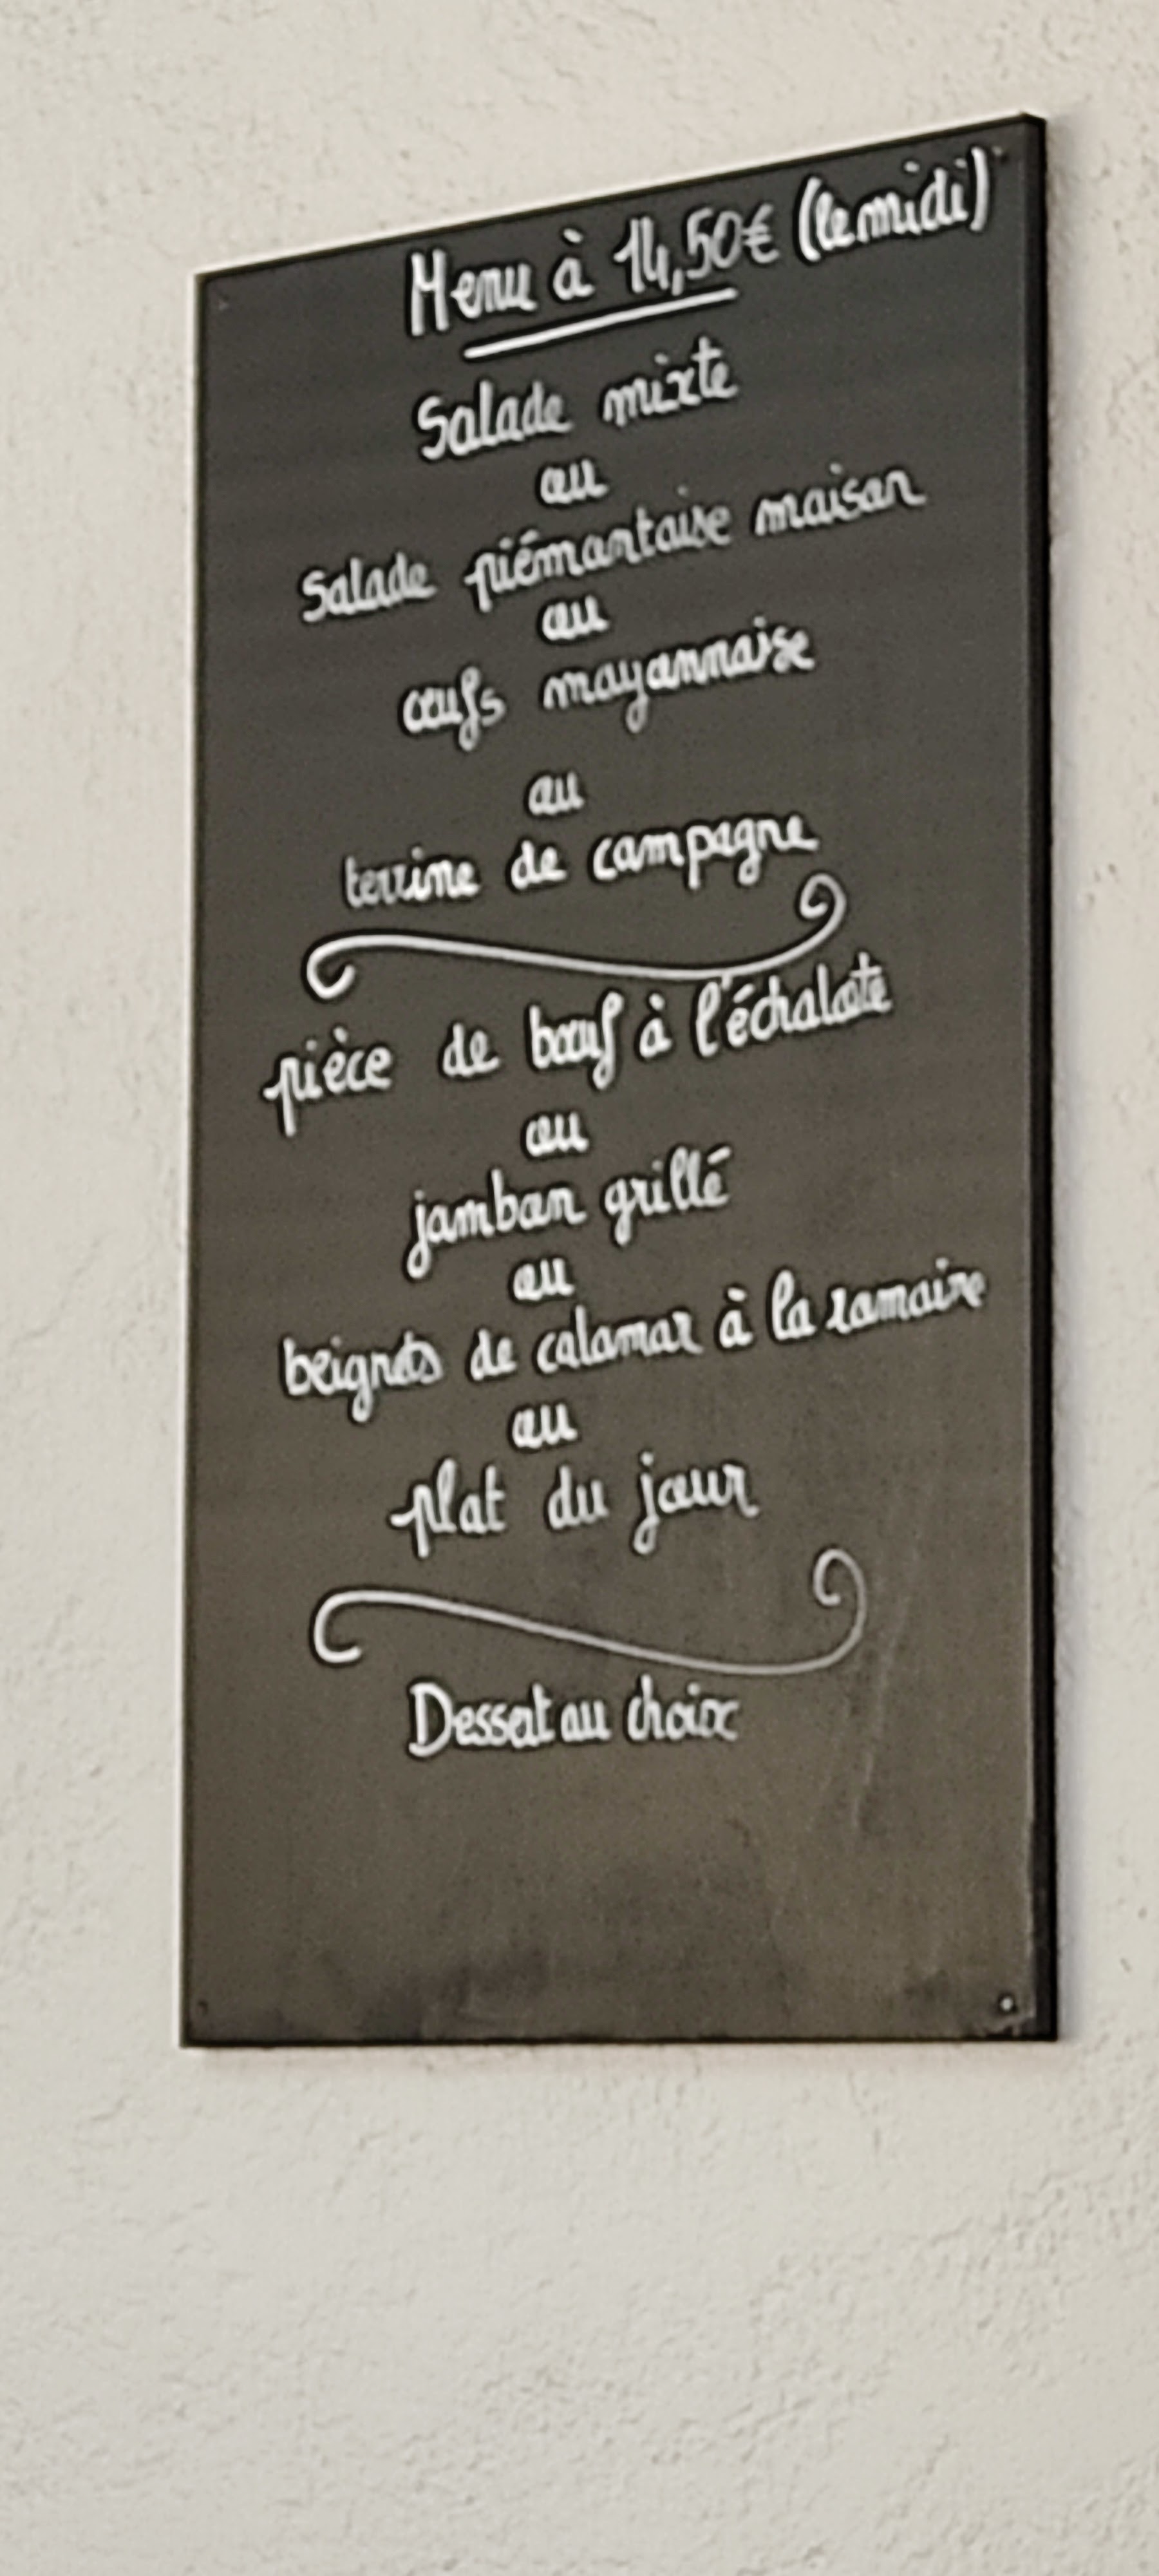 Menu à 14,50€ (le midi)
Salade mixte
ou
Salade piémontaise maison
ou
œufs mayonnaise
ou
terrine de campagne
pièce de bœuf à l'échalote
ou
jambon grillé
ou
beignets de calamar à la romaine
ou
plat du jour
Dessert au choix